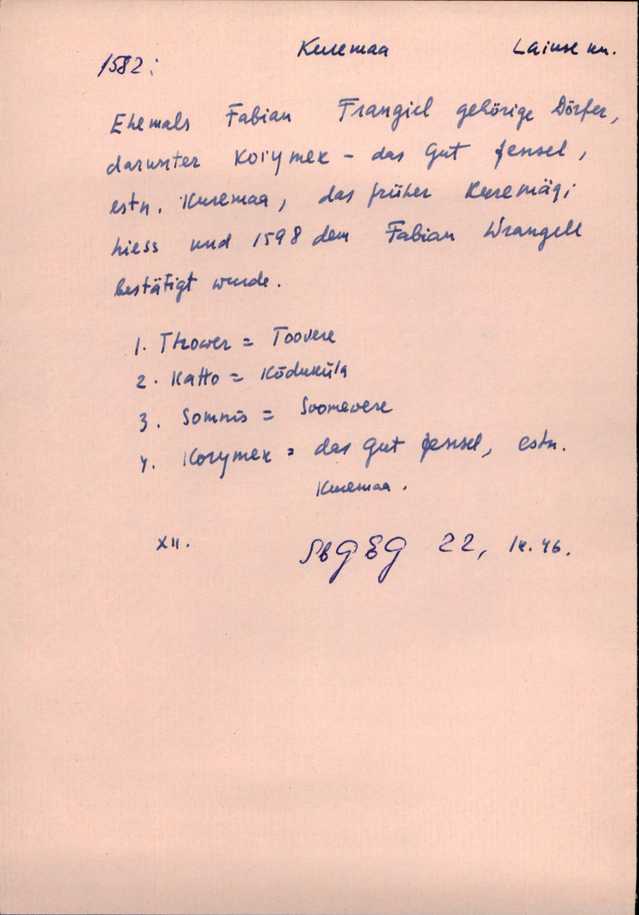 Kuremaa Laiuse kn.
1582:
Ehemals Fabian Frangiel gehörige Dörfer,
darunter Korymek - das Gut Jensel,
estn. Kuremaa, das früher Kuremägi
hiess und 1598 dem Fabian Wrangell
bestätigt wurde.
1. Thower = Toovere
2. Katto = Kõduküla
3. Somnis = Soomevere
4. Korymek = das Gut Jensel, estn.
Kuremaa.
XII. SbGEG 22, lk. 46.